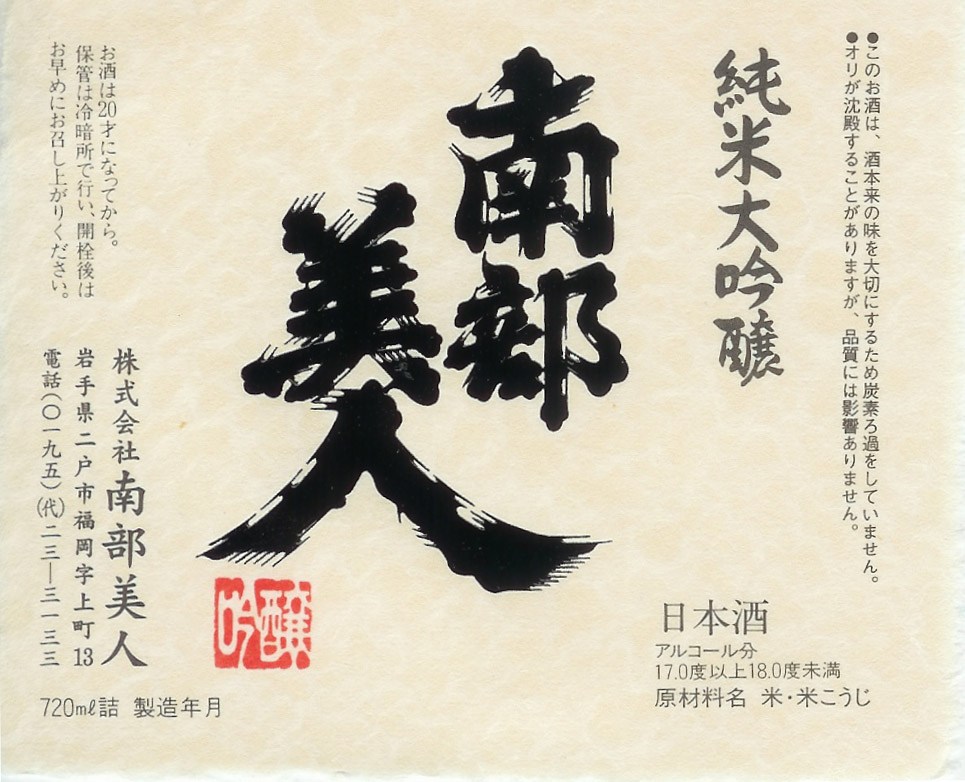 ●このお酒は、酒本来の味を大切にするため炭素ろ過をしていません。
●オリが沈殿することがありますが、品質には影響ありません。
純米大吟醸
南部
美人
吟醸
お酒は20才になってから。
保管は冷暗所で行い、開栓後は
お早めにお召し上がりください。
株式会社南部美人
岩手県二戸市福岡字上町13
電話(〇一九五)(代)二三―三一三三
日本酒
アルコール分
17.0度以上18.0度未満
原材料名 米・米こうじ
720mℓ詰 製造年月